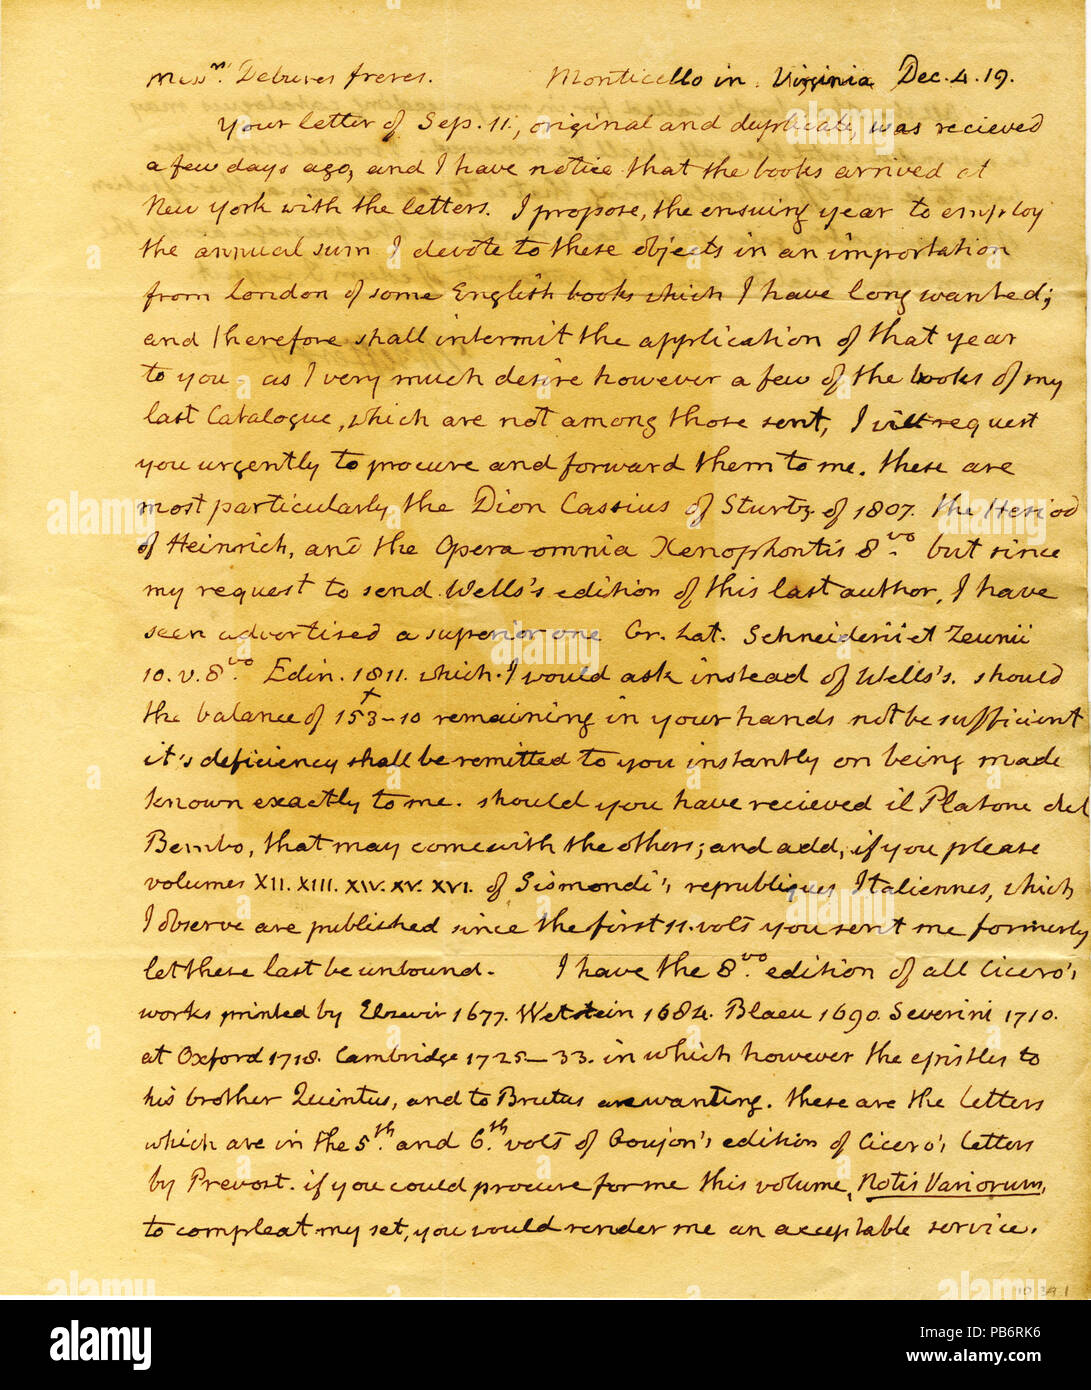 Mess.rs Debures freres. Monticello in Virginia Dec. 4. 19.
Your letter of Sep. 11, original and duplicate, was recieved
a few days ago, and I have notice that the books arrived at
New York with the letters. I propose, the ensuing year to employ
the annual sum I devote to these objects in an importation
from London of some English books which I have long wanted;
and therefore shall intermit the application of that year
to you. as I very much desire however a few of the books of my
last Catalogue, which are not among those sent, I will request
you urgently to procure and forward them to me. these are
most particularly the Dion Cassius of Sturtz of 1807. the Hesiod
of Heinrich, and the Opera omnia Xenophontis 8.vo but since
my request to send Wells's edition of this last author, I have
seen advertised a superior one Gr. Lat. Schneiderii et Zeunii
10. v. 8.vo Edin. 1811. which I would ask instead of Wells's. should
the balance of 153-10 remaining in your hands not be sufficient
it's deficiency shall be remitted to you instantly on being made
known exactly to me. should you have recieved il Platone del
Bembo, that may come with the others; and add, if you please
volumes XII. XIII. XIV. XV. XVI. of Sismondi's republiques Italiennes, which
I observe are published since the first 11. vols you sent me formerly
let these last be unbound. I have the 8.vo edition of all Cicero's
works printed by Elzevir 1677. Wetstein 1684. Blaeu 1690. Severini 1710.
at Oxford 1718. Cambridge 1725-33. in which however the epistles to
his brother Quintus, and to Brutus are wanting. these are the letters
which are in the 5.th and 6.th vols of Goujon's edition of Cicero's letters
by Prevost. if you could procure for me this volume, Notis Variorum,
to compleat my set, you would render me an acceptable service.
alamy
alamy stock photo
PB6RK6
www.alamy.com